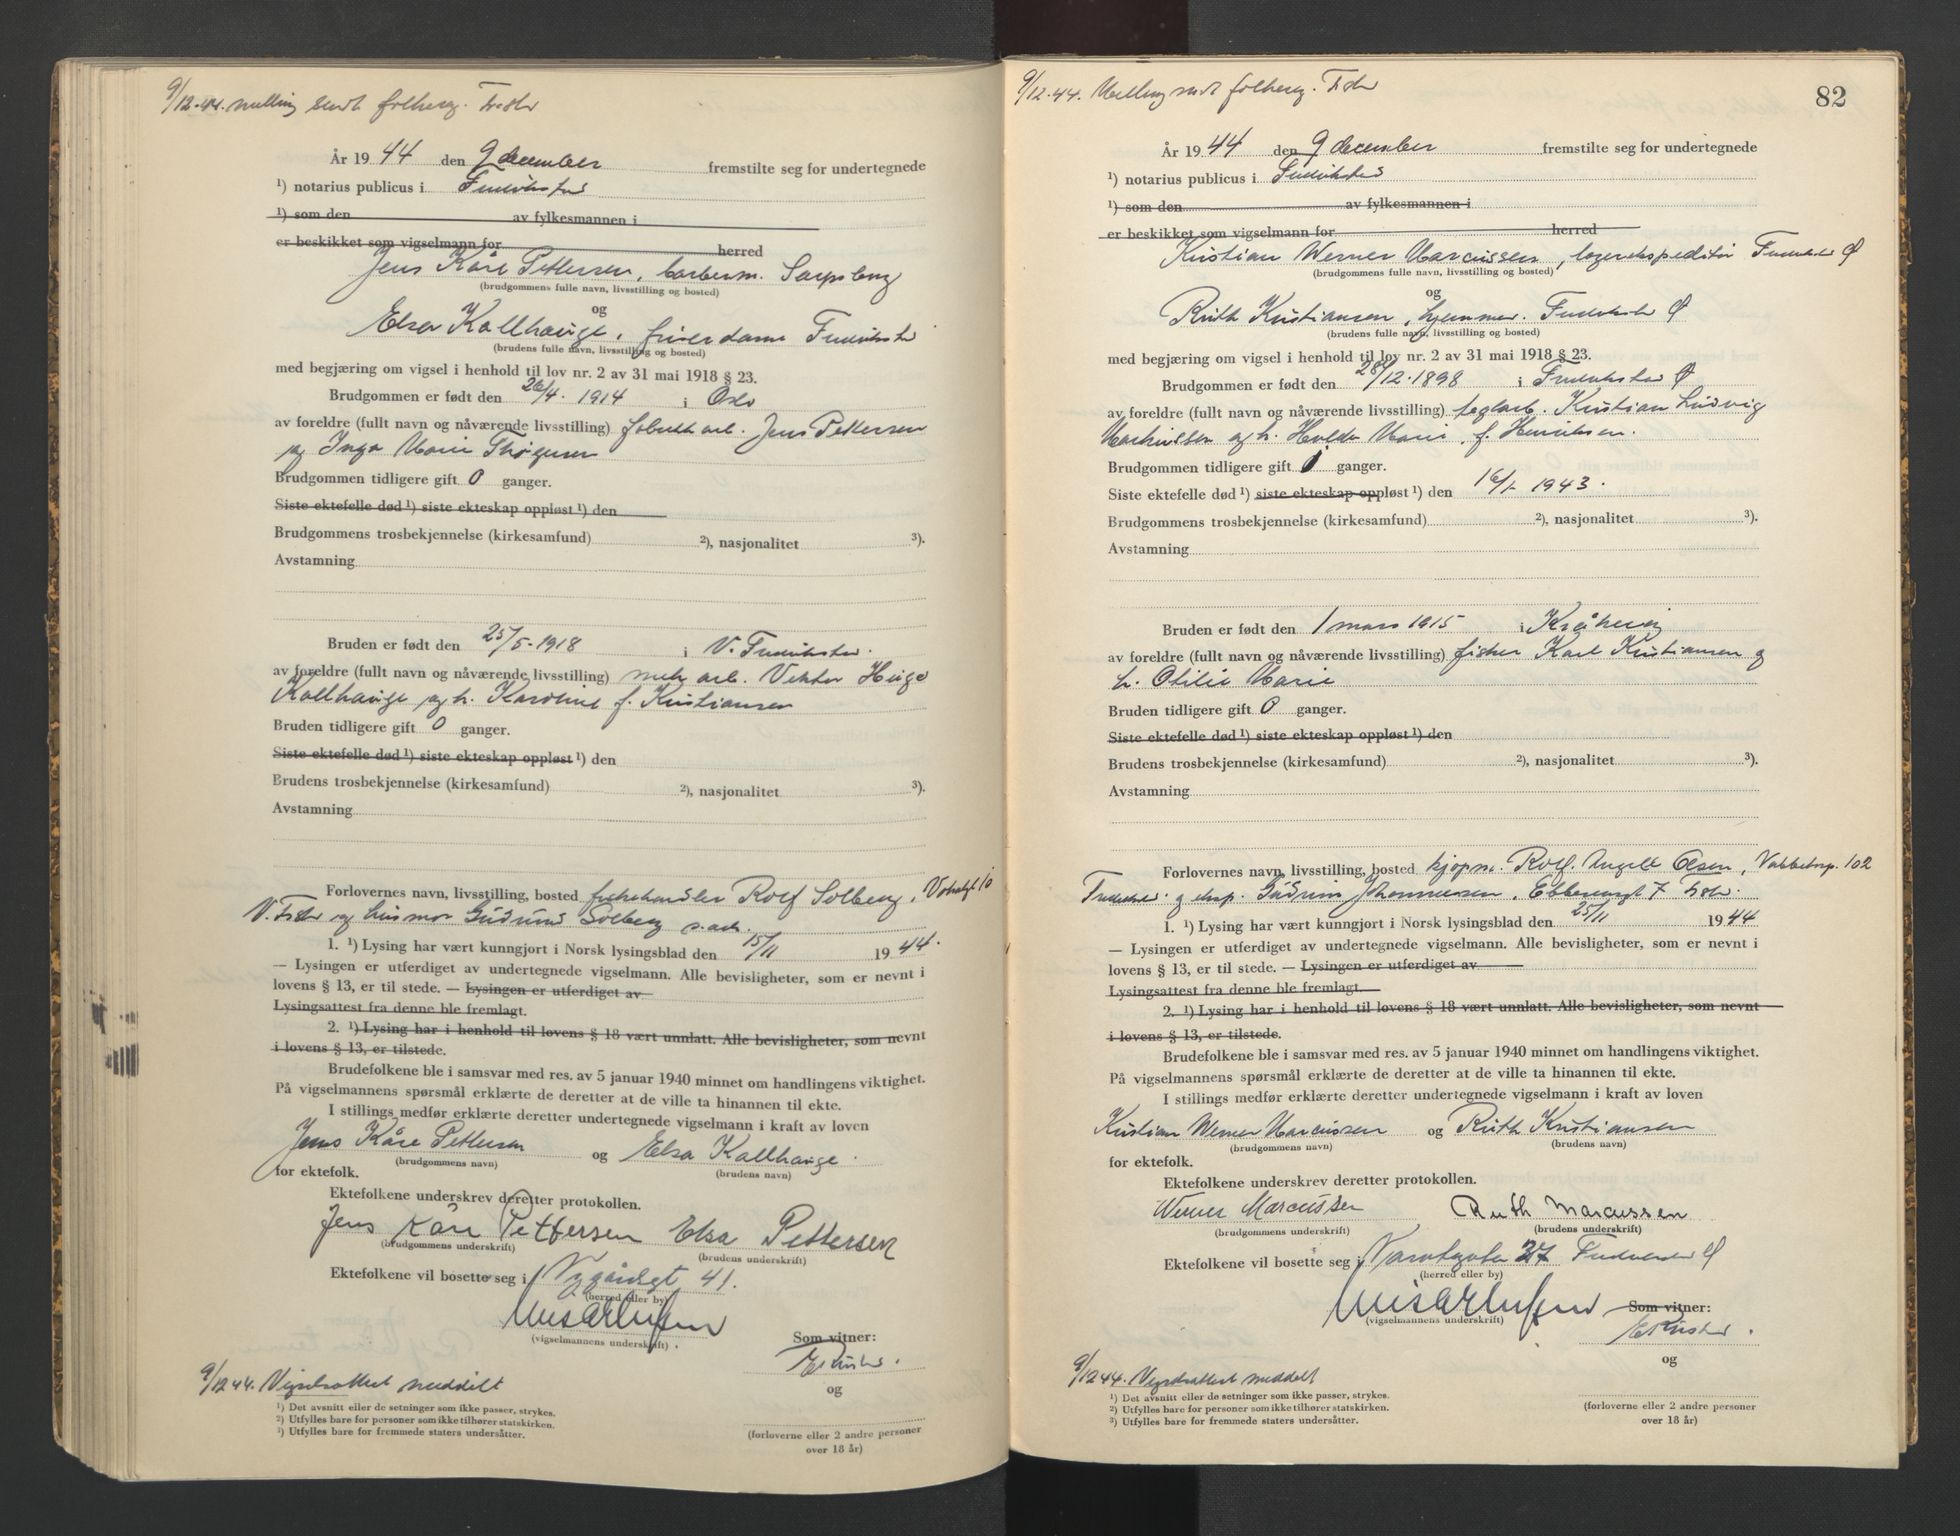 9/12-44. melling sendt folkereg. Fr.stad
År 1944 den 9 december fremstilte seg for undertegnede
¹) notarius publicus i Fredrikstad
¹) som den av fylkesmannen i
er beskikket som vigselmann for herred
Jens Kåre Pettersen, barberm. Sarpsborg
(brudgommens fulle navn, livsstilling og bosted)
og
Elsa Kallhauge, friserdame Fredrikstad
(brudens fulle navn, livsstilling og bosted)
med begjæring om vigsel i henhold til lov nr. 2 av 31 mai 1918 § 23.
Brudgommen er født den 26/4. 1914 i Oslo
av foreldre (fullt navn og nåværende livsstilling) fabrikkarb. Jens Pettersen
og Inga Marie
Brudgommen tidligere gift 0 ganger.
Siste ektefelle død ¹) siste ekteskap oppløst ¹) den
Brudgommens trosbekjennelse (kirkesamfund) ²), nasjonalitet ³).
Avstamning
Bruden er født den 25/5-1918 i V. Fredrikstad.
av foreldre (fullt navn og nåværende livsstilling) mek arb. Viktor Hugo
Kallhauge og h. Karoline f. Kristiansen
Bruden tidligere gift 0 ganger.
Siste ektefelle død ¹) siste ekteskap oppløst ¹) den
Brudens trosbekjennelse (kirkesamfund) ²), nasjonalitet ³).
Avstamning
Forlovernes navn, livsstilling, bosted fiskehandler Rolf Solberg,
V. Fr.stad og husmor Gudrun Solberg s.adr.
1. ¹) Lysing har vært kunngjort i Norsk lysingsblad den 15/11 1944.
— Lysingen er utferdiget av undertegnede vigselmann. Alle bevisligheter, som er nevnt i
lovens § 13, er til stede. — Lysingen er utferdiget av
Lysingsattest fra denne ble fremlagt.
2. ¹) Lysing har i henhold til lovens § 18 vært unnlatt. Alle bevisligheter, som nevnt
i lovens § 13, er tilstede.
Brudefolkene ble i samsvar med res. av 5 januar 1940 minnet om handlingens viktighet.
På vigselmannens spørsmål erklærte de deretter at de ville ta hinannen til ekte.
I stillings medfør erklærte deretter undertegnede vigselmann i kraft av loven
Jens Kåre Pettersen og Elsa Kallhauge.
(brudgommens navn) (brudens navn)
for ektefolk.
Ektefolkene underskrev deretter protokollen.
Jens Kåre Pettersen Elsa Pettersen
(brudgommens underskrift) (brudens underskrift)
Ektefolkene vil bosette seg i Nygårdsgt 41.
(herred eller by)
(vigselmannens underskrift).
Som vitner:
og
9/12 44. Vigselsattest meddelt
¹) Det avsnitt eller de setninger som ikke passer, strykes.
²) Utfylles bare for personer som ikke tilhører statskirken.
³) Utfylles bare for fremmede staters undersåtter.
(forloverne eller 2 andre personer
over 18 år)
82
9/12-44. Melling sendt folkereg. Fr.stad
År 1944 den 9 december fremstilte seg for undertegnede
¹) notarius publicus i Fredrikstad
¹) som den av fylkesmannen i
er beskikket som vigselmann for herred
Kristian Werner Marcussen, lagerekspeditør Fredrikstad Ø
(brudgommens fulle navn, livsstilling og bosted)
og
Ruth Kristiansen, hjemmev. Fredrikstad Ø
(brudens fulle navn, livsstilling og bosted)
med begjæring om vigsel i henhold til lov nr. 2 av 31 mai 1918 § 23.
Brudgommen er født den 28/12-1898 i Fredrikstad Ø
av foreldre (fullt navn og nåværende livsstilling) teglarb. Kristian Ludvig
Markussen og h. Hulda Marie, f. Henriksen.
Brudgommen tidligere gift 1 ganger.
Siste ektefelle død ¹) siste ekteskap oppløst ¹) den 16/1-1943.
Brudgommens trosbekjennelse (kirkesamfund) ²), nasjonalitet ³).
Avstamning
Bruden er født den 1 mars 1915 i Kråkerøy
av foreldre (fullt navn og nåværende livsstilling) fisker Karl Kristiansen og
h. Otilie Marie
Bruden tidligere gift 0 ganger.
Siste ektefelle død ¹) siste ekteskap oppløst ¹) den
Brudens trosbekjennelse (kirkesamfund) ²), nasjonalitet ³).
Avstamning
Forlovernes navn, livsstilling, bosted kjøpm. Rolf Angell Olsen, 102
Fredrikstad og eksp. Gudrun Johannessen, 7 Fr.stad.
1. ¹) Lysing har vært kunngjort i Norsk lysingsblad den 25/11 1944
— Lysingen er utferdiget av undertegnede vigselmann. Alle bevisligheter, som er nevnt i
lovens § 13, er til stede. — Lysingen er utferdiget av
Lysingsattest fra denne ble fremlagt.
2. ¹) Lysing har i henhold til lovens § 18 vært unnlatt. Alle bevisligheter, som nevnt
i lovens § 13, er tilstede.
Brudefolkene ble i samsvar med res. av 5 januar 1940 minnet om handlingens viktighet.
På vigselmannens spørsmål erklærte de deretter at de ville ta hinannen til ekte.
I stillings medfør erklærte deretter undertegnede vigselmann i kraft av loven
Kristian Werner Marcussen og Ruth Kristiansen
(brudgommens navn) (brudens navn)
for ektefolk.
Ektefolkene underskrev deretter protokollen.
Werner Marcussen Ruth Marcussen
(brudgommens underskrift) (brudens underskrift)
Ektefolkene vil bosette seg i 37 Fredrikstad Ø
(herred eller by)
(vigselmannens underskrift)
Som vitner:
og
9/12 44. Vigselsattest meddelt
¹) Det avsnitt eller de setninger som ikke passer, strykes.
²) Utfylles bare for personer som ikke tilhører statskirken.
³) Utfylles bare for fremmede staters undersåtter.
(forloverne eller 2 andre personer
over 18 år)